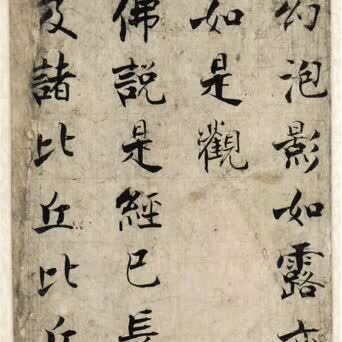 幻泡影如露亦
如是觀
佛說是經已長
及諸比丘比丘